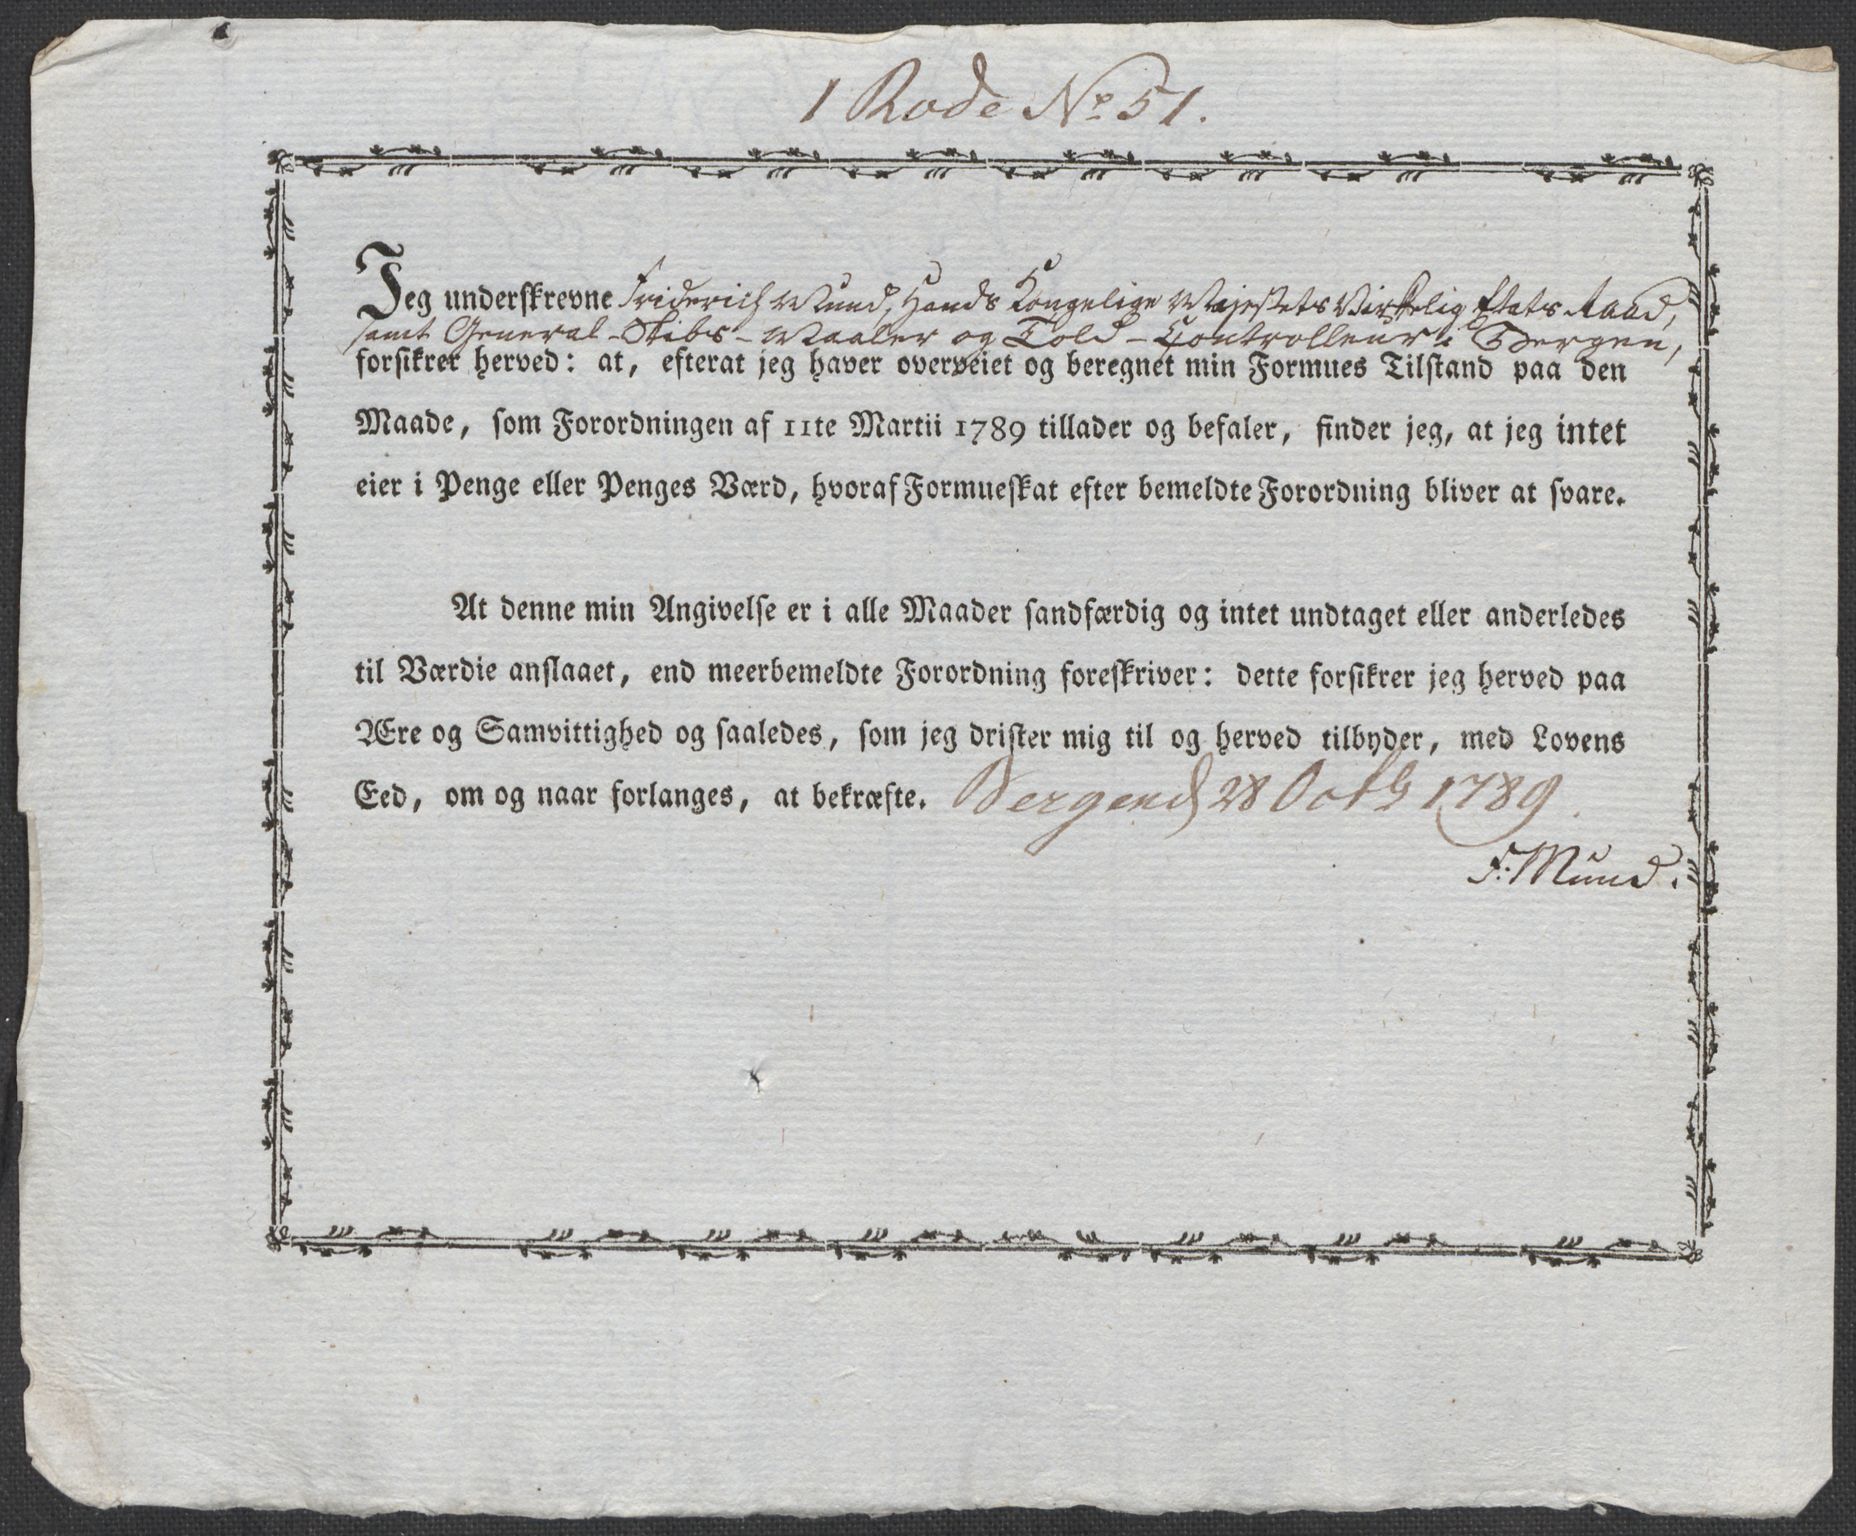 1 Rode No 51.
Jeg underskrevne Friderich Mund, Hands Kongelige Majestets Virkelig Etats Raad,
samt General-Skibs-Maaler og Told-Controlleur i Bergen,
forsikrer herved: at, efterat jeg haver overveiet og beregnet min Formues Tilstand paa den
Maade, som Forordningen af 11te Martii 1789 tillader og befaler, finder jeg, at jeg intet
eier i Penge eller Penges Værd, hvoraf Formueskat efter bemeldte Forordning bliver at svare.
At denne min Angivelse er i alle Maader sandfærdig og intet undtaget eller anderledes
til Værdie anslaaet, end meerbemeldte Forordning foreskriver: dette forsikrer jeg herved paa
Ære og Samvittighed og saaledes, som jeg drister mig til og herved tilbyder, med Lovens
Eed, om og naar forlanges, at bekræfte. Bergen d 28 Octb 1789.
F: Mund.